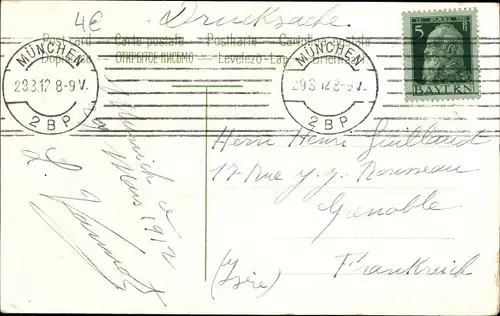 4€
Drucksache
Postcard — Carte postale — Postkarte — Cartolina postale
ОТКРЫТОЕ ПИСЬМО — Levelező-Lap
MÜNCHEN
29.3.12 8-9 V.
2 B P
MÜNCHEN
29.3.12 8-9 V.
2 B P
5
BAYERN
Munich
Mars 1912
Herrn Henri Guillaud
17 Rue J. J. Rousseau
Grenoble
(Isère)
Frankreich